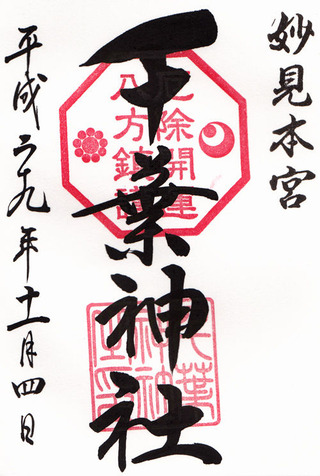 妙見本宮
千葉神社
平成二九年十一月四日
厄除開運
八方鎮護